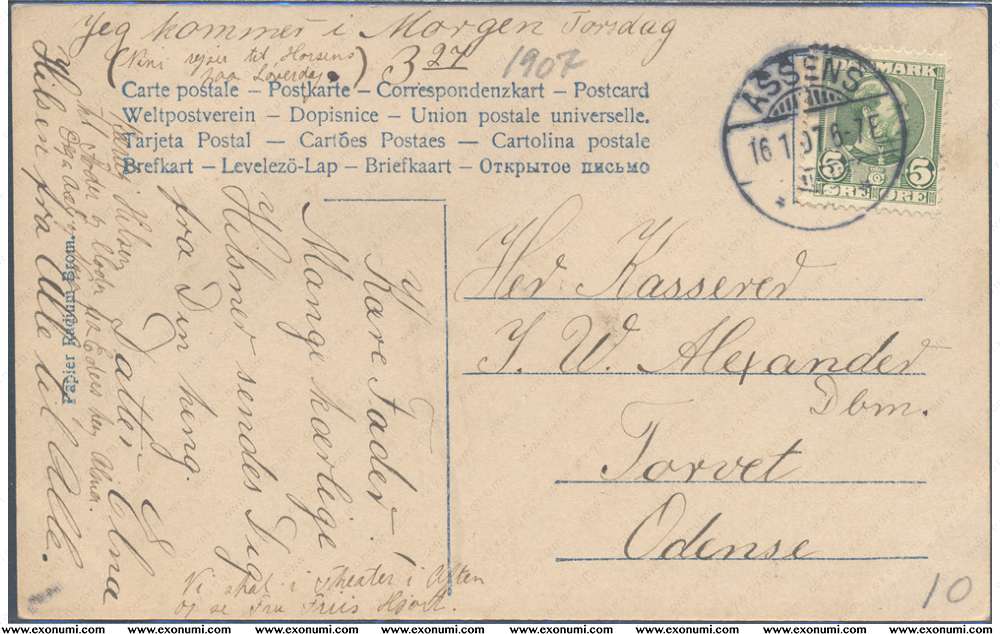 Jeg kommer i Morgen Torsdag
(Nini rejser til Horsens
paa Loverdag.) 3 27
1907
Carte postale – Postkarte – Correspondenzkart – Postcard
Weltpostverein – Dopisnice – Union postale universelle.
Tarjeta Postal – Cartões Postaes – Cartolina postale
Brefkart – Levelezö-Lap – Briefkaart – Открытое письмо
ASSENS
16.1.07 6-7E
DANMARK
5 5
ØRE ØRE
Kære Fader!
Mange kærlige
Hilsner sendes Dig
fra Din heng.
Datter Elna
Hilsen fra Alle til Alle.
Hilsen
Papier Radium Brom.
Vi skal i Theater i Aften
og se Fru Friis Hjort.
Her Kasserer
J. W. Alexander
Dbm.
Torvet
Odense
10
www.exonumi.com www.exonumi.com www.exonumi.com www.exonumi.com www.exonumi.com www.exonumi.com www.exonumi.com www.exonumi.com